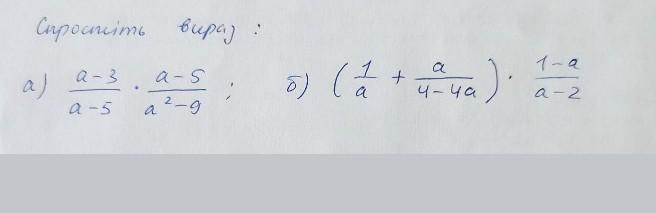 Спростіть вираз :
а) \frac{a-3}{a-5} \cdot \frac{a-5}{a^2-9} ; б) \left( \frac{1}{a} + \frac{a}{4-4a} \right) \cdot \frac{1-a}{a-2}